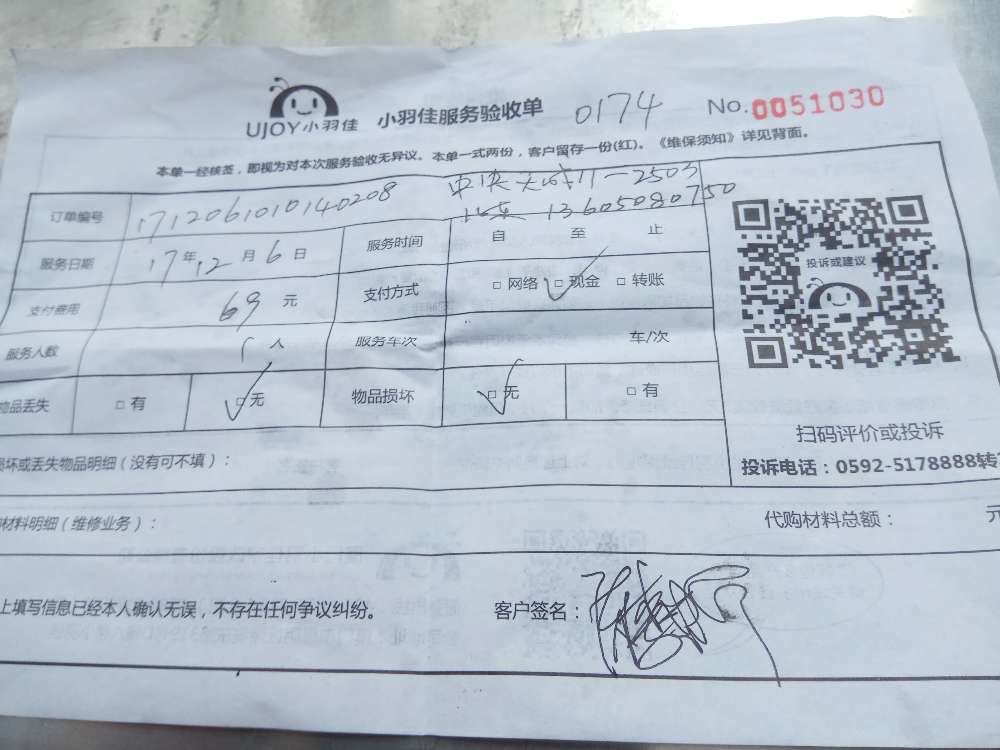 UJOY小羽佳 小羽佳服务验收单 0174 No.0051030
本单一经核签，即视为对本次服务验收无异议。本单一式两份，客户留存一份(红)。《维保须知》详见背面。
订单编号 171206101014020８ 中央 11-2503
13605080750
服务日期 17年12月6日 服务时间 自 至 止
支付费用 69元 支付方式 □网络 □现金 □转账
服务人数 1人 服务车次 车/次
物品丢失 □有 □无 物品损坏 □无 □有
投诉或建议
扫码评价或投诉
投诉电话：0592-5178888转
损坏或丢失物品明细（没有可不填）：
材料明细（维修业务）： 代购材料总额： 元
上填写信息已经本人确认无误，不存在任何争议纠纷。 客户签名：